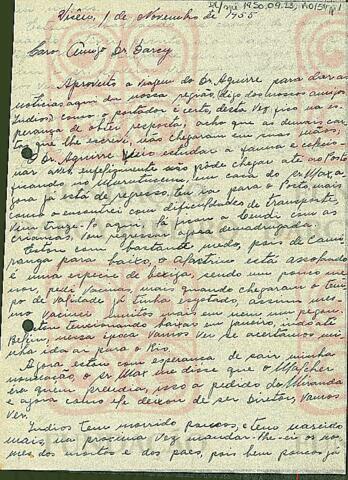 Viséu, 1 de Novembro de 1955
Caro Amigo Dr Darcy
Aproveito a viagem do Dr Aguirre para dar as
noticias aqui da nossa região, digo dos nossos amigos
Indios, como o portador é certo, desta vez, fico na es-
perança de obter resposta, acho que as demais car-
tas que lhe escrevi, não chegaram em suas mãos,
O Dr. Aguirre veio estudar a fauna e colecio-
nar aves infelizmente só pôde chegar até ao Posto
ficando no em casa do Sr Max, a-
gora já está de regresso, tem ia para o Posto, mais
como o encontrei com dificuldades de transporte
vim traze-lo aqui. lá ficou a com as
crianças, vem regressar agora de madrugada.
Estou com bastante medo, pois de Cami-
ranga para baixo, o está assolando
é uma especie de bexiga, sendo um pouco me-
nor, pedi vacina mais quando chegaram o tem-
po de validade já tinha esgotado, assim mes-
mo vacinei muitos mais em nem um pegou.
Estou tencionando baixar em janeiro, indo até
Belém, nessa época vamos ver se acertamos mi-
nha ida ai para o Rio.
Agora estou com esperança de sair minha
nomeação, o Sr Max me disse que o Malcher
era quem prendia, isso a pedido do Miranda
e agora como ele deixou de ser Diretor, vamos
ver.
Indios tem morrido poucos, e tem nascido
mais, na proxima vez mandar-lhe-ei os no-
mes dos mortos e dos paes, pois bem poucos já